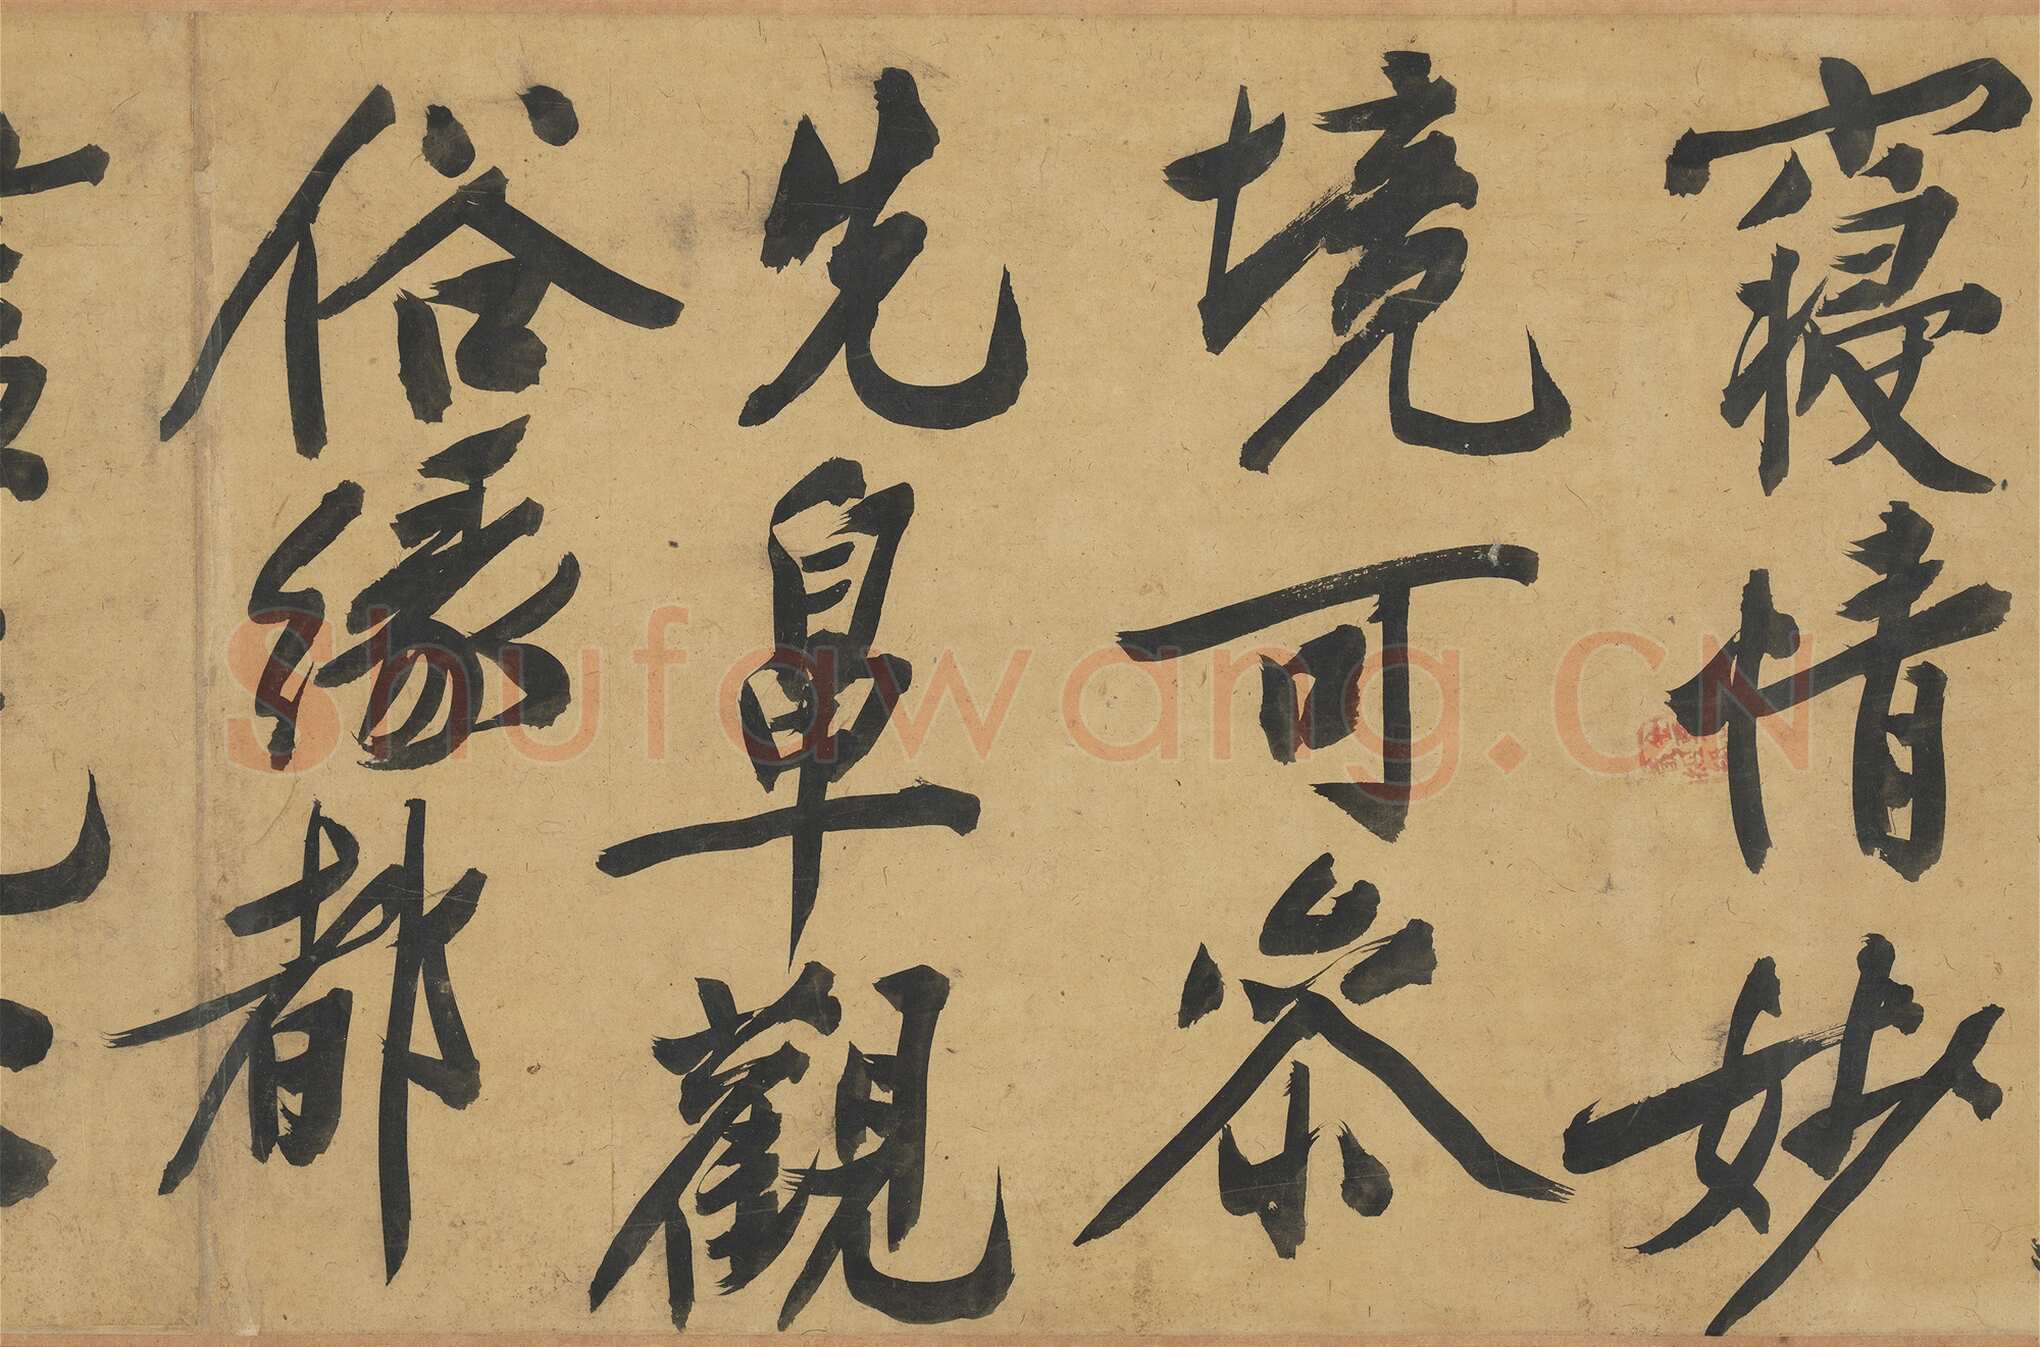 寢情妙
境可參
先觀
俗緣都
Shufawang.CN